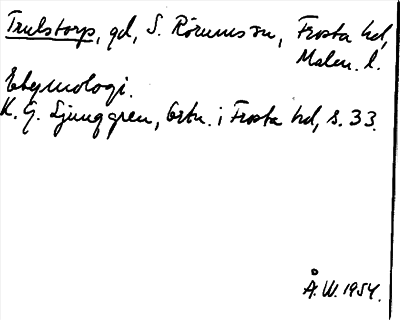 Trulstorp, gd, S. Rörums sn, Frosta hd,
Malm. l.
Etymologi.
K. G. Ljunggren, Ortn. i Frosta hd, s. 33.
Å. W. 1954.